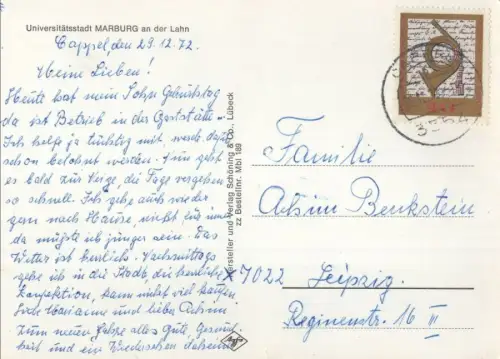 Universitätsstadt MARBURG an der Lahn
Cappel, den 29.12.72.
Meine Lieben!
Heute hat mein Sohn Geburtstag
da ist Betrieb in der Gaststätte.
Ich helfe ja tüchtig mit, werde dafür
schon belohnt werden. Nun geht
es bald zur Neige, die Tage vergehen
so schnell. Ich gehe auch wieder
gern nach Hause, nicht für immer
da müßte ich jünger sein. Das
Wetter ist herrlich. Nachmittags
gehe ich in die Stadt, die herrliche
Konfektion, kann nicht viel kaufen
Liebe Marianne und lieber Achim
zum neuen Jahre alles Gute, Gesund-
heit und ein Wiedersehen daheim
Hersteller und Verlag Schöning & Co., Lübeck
zz Bestellnr. Mbl 189
Familie
Achim Benkstein
7022 Leipzig
Reginenstr. 16 II